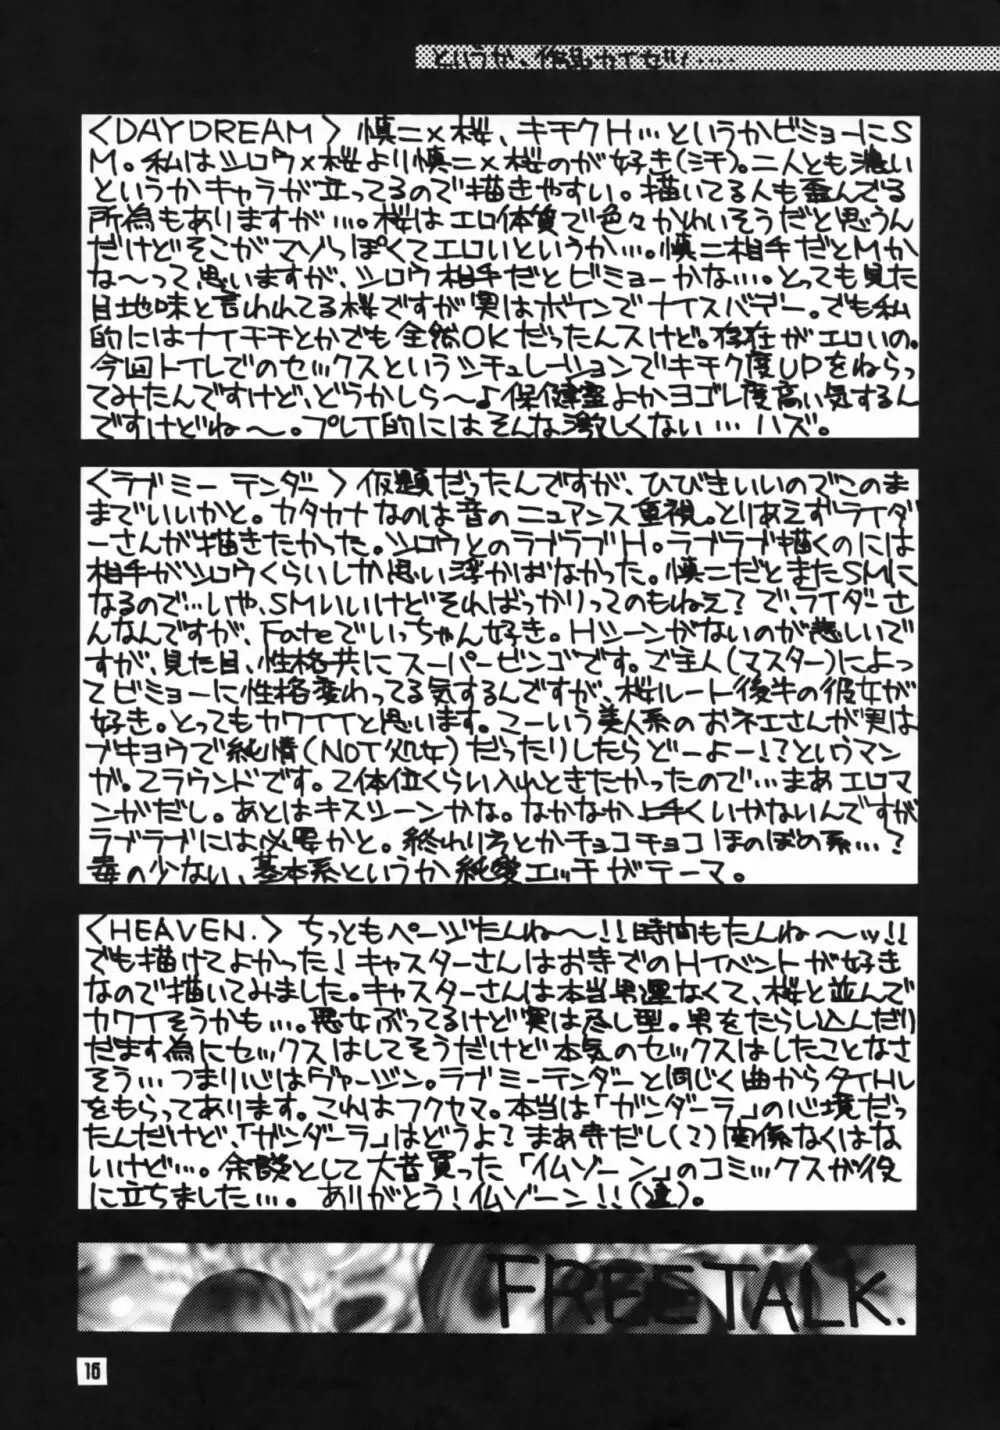 というか、
<DAYDREAM> 慎二×桜、キチクH…というかビミョーにS
M。私はシロウ×桜より慎二×桜のが好き(汗)。二人とも濃い
というかキャラが立ってるので描きやすい。描いてる人も歪んでる
所為もありますが…。桜はエロ体質で色々かわいそうだと思うん
だけどそこがマゾっぽくてエロいというか…。慎二相手だとMか
な〜って思いますが、シロウ相手だとビミョーかな…。とっても見た
目地味と言われてる桜ですが実はボインでナイスバデー。でも私
的にはナイチチとかでも全然OKだったんスけど。存在がエロいの。
今回トイレでのセックスというシチュレーションでキチク度UPをねらっ
てみたんですけど、どうかしら〜♪保健室よかヨゴレ度高い気するん
ですけどね〜。プレイ的にはそんな激しくない…ハズ。
<ラブミーテンダー> 仮題だったんですが、ひびきいいのでこのま
までいいかと。カタカナなのは音のニュアンス重視。とりあえずライダ
ーさんが描きたかった。シロウとのラブラブH。ラブラブ描くのには
相手がシロウくらいしか思い浮かばなかった。慎二だとまたSMに
なるので…いや、SMいいけどそればっかりってのもねえ?で、ライダーさ
んなんですが、Fateでいっちゃん好き。Hシーンがないのが悲しいで
すが、見た目、性格共にスーパービンゴです。ご主人(マスター)によっ
てビミョーに性格変わってる気するんですが、桜ルート後半の彼女が
好き。とってもカワイイと思います。こーいう美人系のおネエさんが実は
ブキヨウで純情(NOT処女)だったりしたらどーよー!?というマン
が。2ラウンドです。2体位くらい入れときたかったので…まあエロマ
ンガだし。あとはキスシーンかな。なかなか上手くいかないんですが
ラブラブには必要かと。終わり方とかチョコチョコほのぼの系…?
毒の少ない、基本系というか純愛エッチがテーマ。
<HEAVEN.> ちっともページたんね〜!!時間もたんね〜ッ!!
でも描けてよかった!キャスターさんはお寺でのHイベントが好き
なので描いてみました。キャスターさんは本当男運なくて、桜と並んで
カワイそうかも…。悪女ぶってるけど実は尽し型。男をたらし込んだり
だます為にセックスはしてそうだけど本気のセックスはしたことなさ
そう…つまり心はヴァージン。ラブミーテンダーと同じく曲からタイトル
をもらってあります。これはフクヤマ。本当は「ガンダーラ」の心境だっ
たんだけど、「ガンダーラ」はどうよ?まあ寺だし(?)関係なくはな
いけど…。余談として大昔買った「仏ゾーン」のコミックスが役
に立ちました…。ありがとう!仏ゾーン!!(違)。
FREE TALK.
16